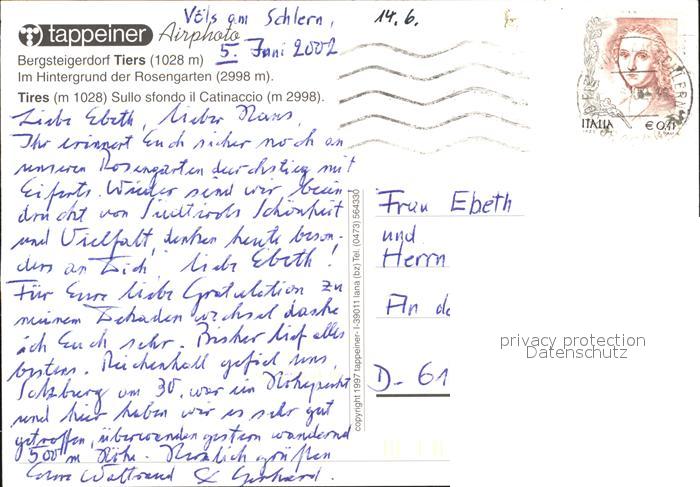 Völs am Schlern,
14. 6.
tappeiner Airphoto
5. Juni 2002
Bergsteigerdorf Tiers (1028 m)
Im Hintergrund der Rosengarten (2998 m).
Tires (m 1028) Sullo sfondo il Catinaccio (m 2998).
ITALIA
€ 0,41
Liebe Ebeth, lieber Hans,
Ihr erinnert Euch sicher noch an
unseren Rosengartendurchstieg mit
Eiferts. Wieder sind wir beein-
druckt von Südtirols Schönheit
und Vielfalt, denken heute beson-
ders an Dich, liebe Ebeth!
Für Eure liebe Gratulation zu
meinem wechsel danke
ich Euch sehr. Bisher lief alles
bestens. Reichenhall gefiel uns,
Salzburg am 30. war ein Höhepunkt
und hier haben wir es sehr gut
getroffen, überwanden gestern wandernd
500 m Höhe. Herzlich grüßen
Eure Waltraud & Gerhard.
copyright 1997 tappeiner- I-39011 lana (bz) Tel. (0473) 564330
Frau Ebeth
und
Herrn
An de
D - 61
privacy protection
Datenschutz